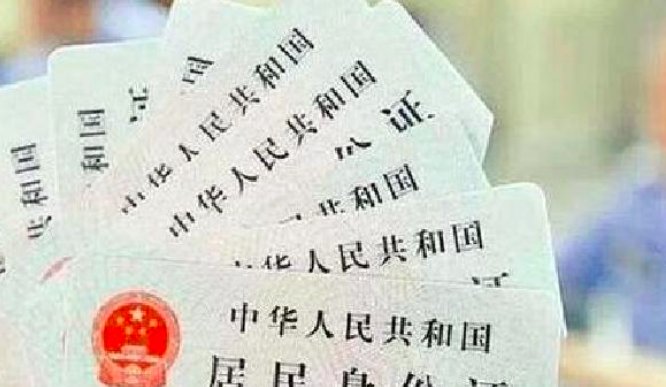 和国
和国
证
中华人民共和国
中华人民共和国
证
共和国
人民共和国
证
中华人民共和国
居民身份证